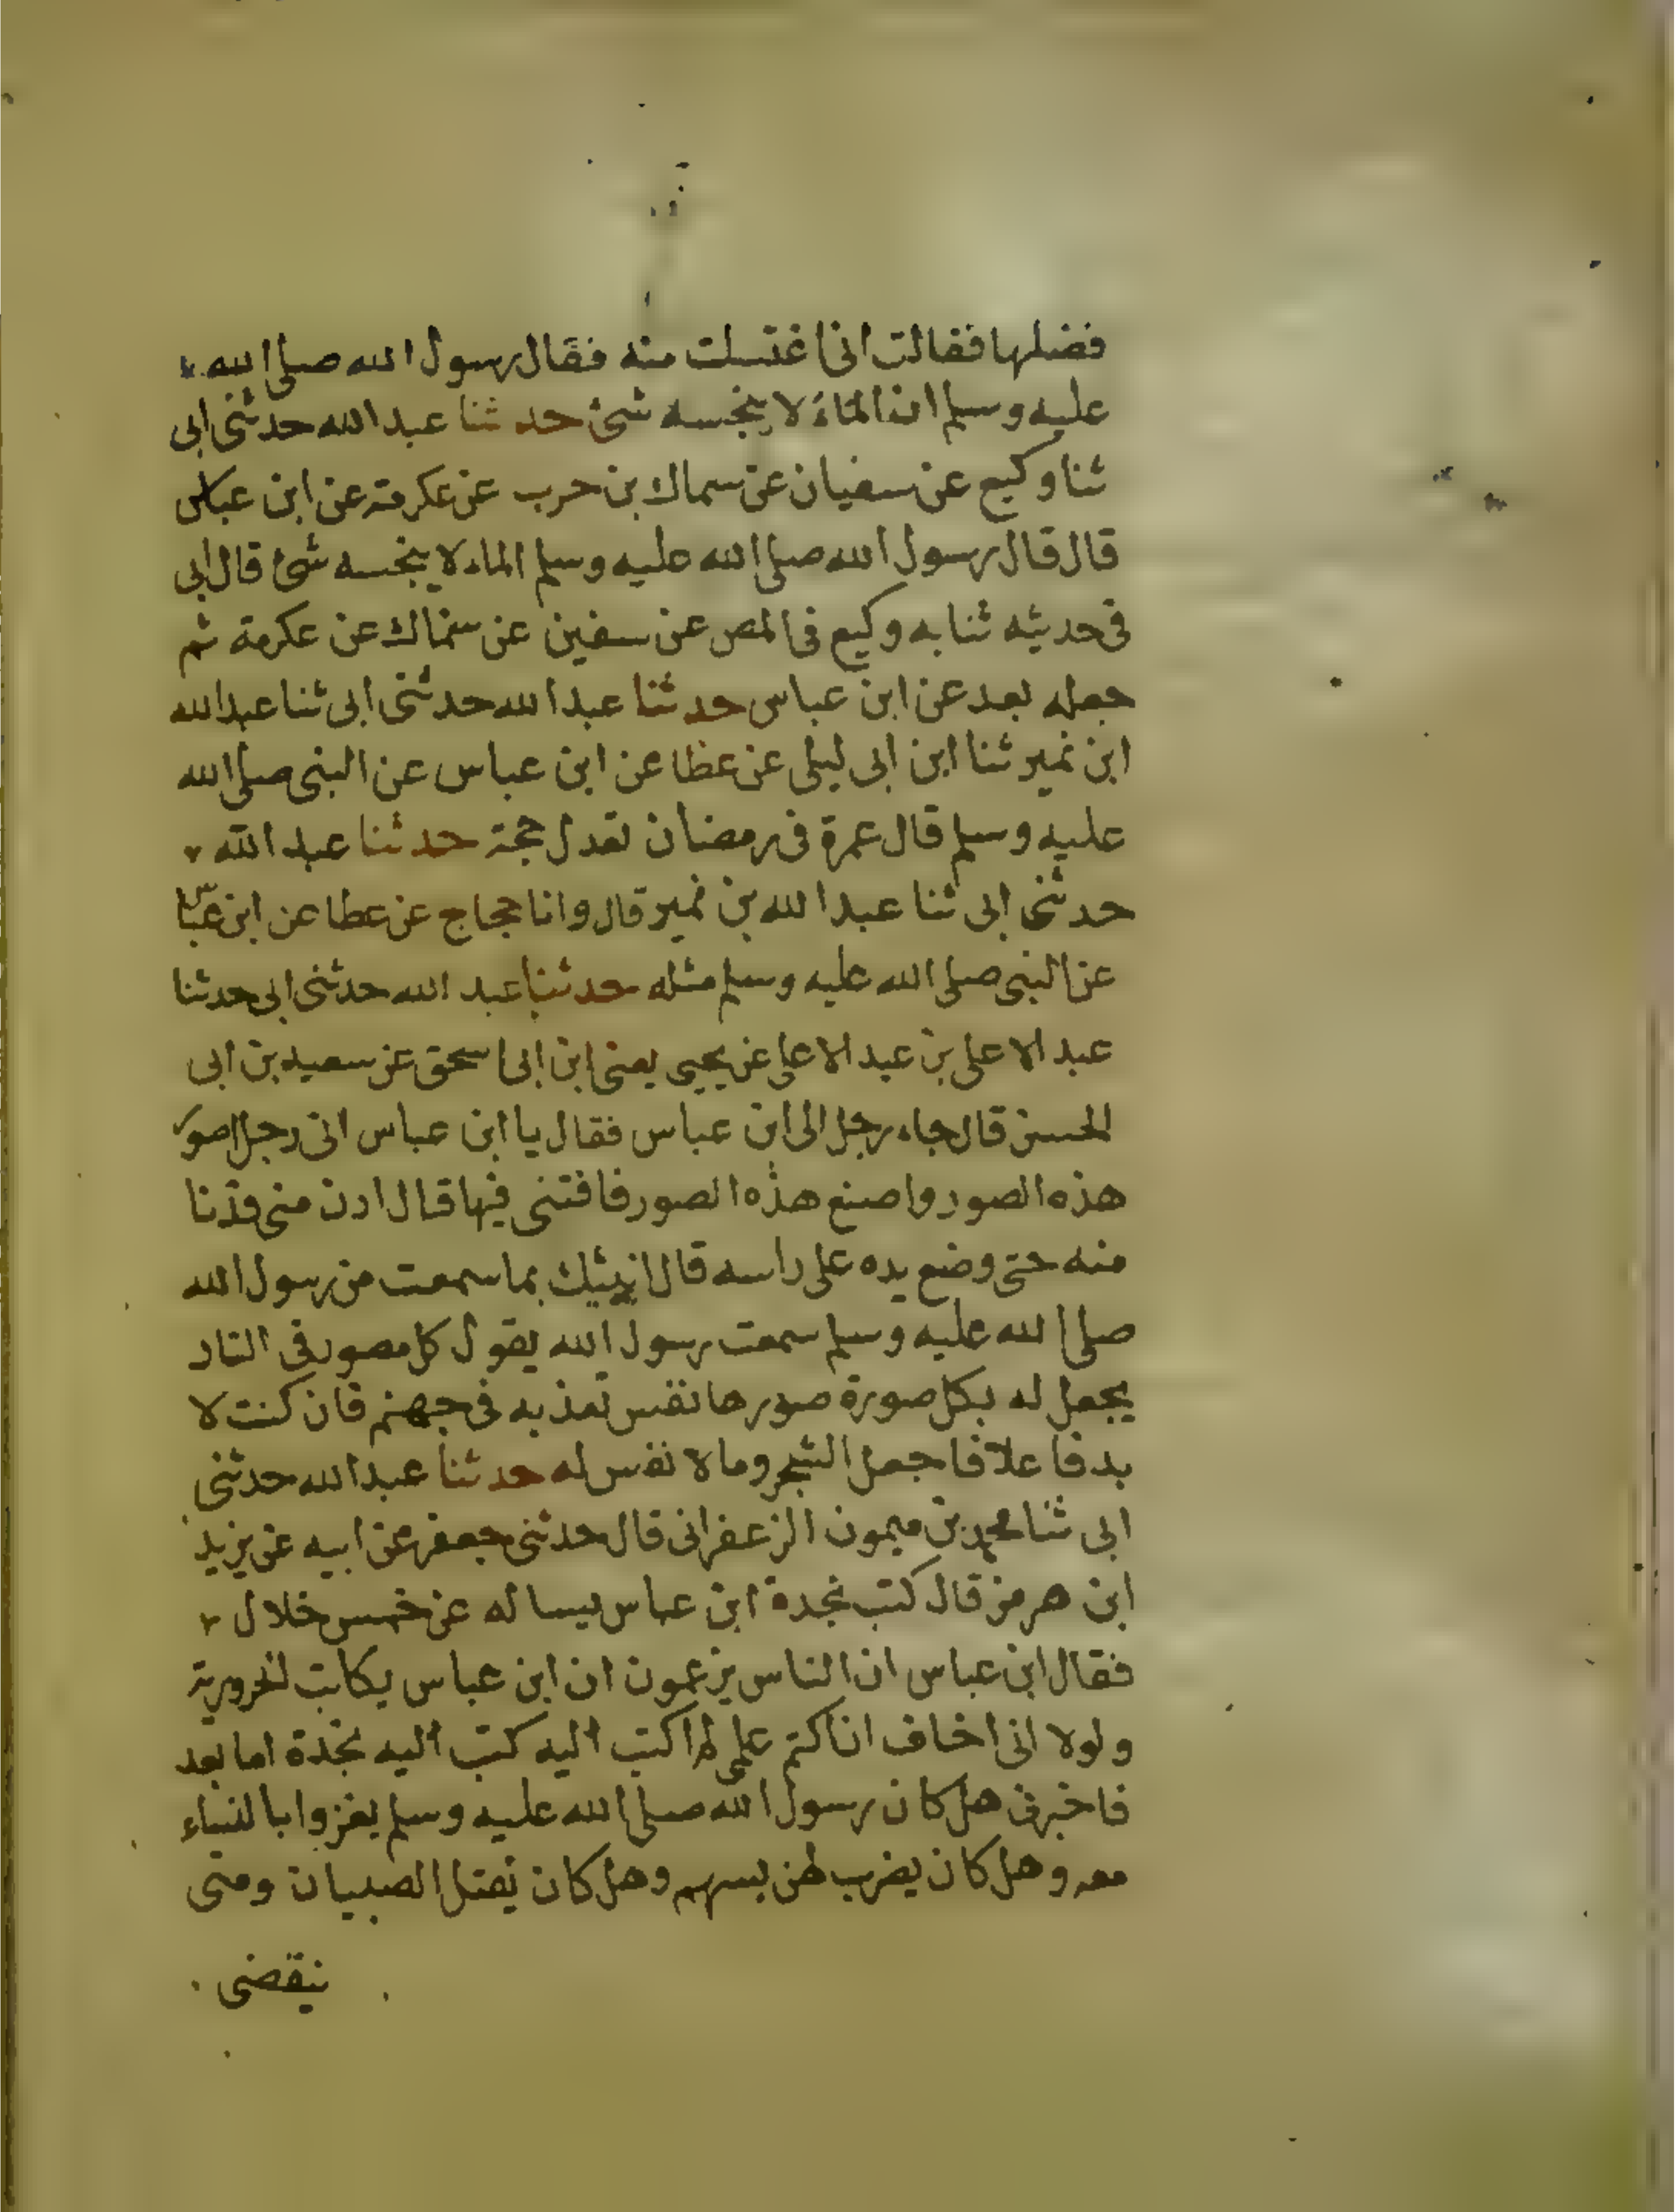 فضلها فقالت انى اغتسلت منه فقال رسول الله صلى الله
عليه وسلم ان الماء لا ينجسه شئ حدثنا عبد الله حدثنى ابى
ثنا وكيع عن سفيان عن سماك بن حرب عن عكرمة عن ابن عباس
قال قال رسول الله صلى الله عليه وسلم الماء لا ينجسه شئ قال ابى
فى حديثه ثنا به وكيع فى المص عن سفين عن سماك عن عكرمة ثم
جعله بعد عن ابن عباس حدثنا عبد الله حدثنى ابى ثنا عبد الله
ابن نمير ثنا ابن ابى ليلى عن عطا عن ابن عباس عن النبى صلى الله
عليه وسلم قال عمرة فى رمضان تعدل حجة حدثنا عبد الله
حدثنى ابى ثنا عبد الله بن نمير قال وانا حجاج عن عطا عن ابن عباس
عن النبى صلى الله عليه وسلم مثله حدثنا عبد الله حدثنى ابى حدثنا
عبد الاعلى بن عبد الاعلى عن يحيى يعنى ابن ابى اسحق عن سعيد بن ابى
الحسن قال جاء رجل الى ابن عباس فقال يا ابن عباس انى رجل اصور
هذه الصور واصنع هذه الصور فافتنى فيها قال ادن منى فدنا
منه حتى وضع يده على راسه قال انبئك بما سمعت من رسول الله
صلى الله عليه وسلم سمعت رسول الله يقول كل مصور فى النار
يجعل له بكل صورة صورها نفس تعذبه فى جهنم فان كنت لا
بد فاعلا فاجعل الشجر وما لا نفس له حدثنا عبد الله حدثنى
ابى ثنا محمد بن ميمون الزعفرانى قال حدثنى جعفر عن ابيه عن يزيد
ابن هرمز قال كتب نجدة ابن عباس يساله عن خمس خلال
فقال ابن عباس ان الناس يزعمون ان ابن عباس يكاتب الحرورية
ولولا انى اخاف ان اكتم علمى لم اكتب اليه كتب اليه نجدة اما بعد
فاخبرنى هل كان رسول الله صلى الله عليه وسلم يغزوا بالنساء
معه وهل كان يضرب لهن بسهم وهل كان يقتل الصبيان ومتى
ينقضى